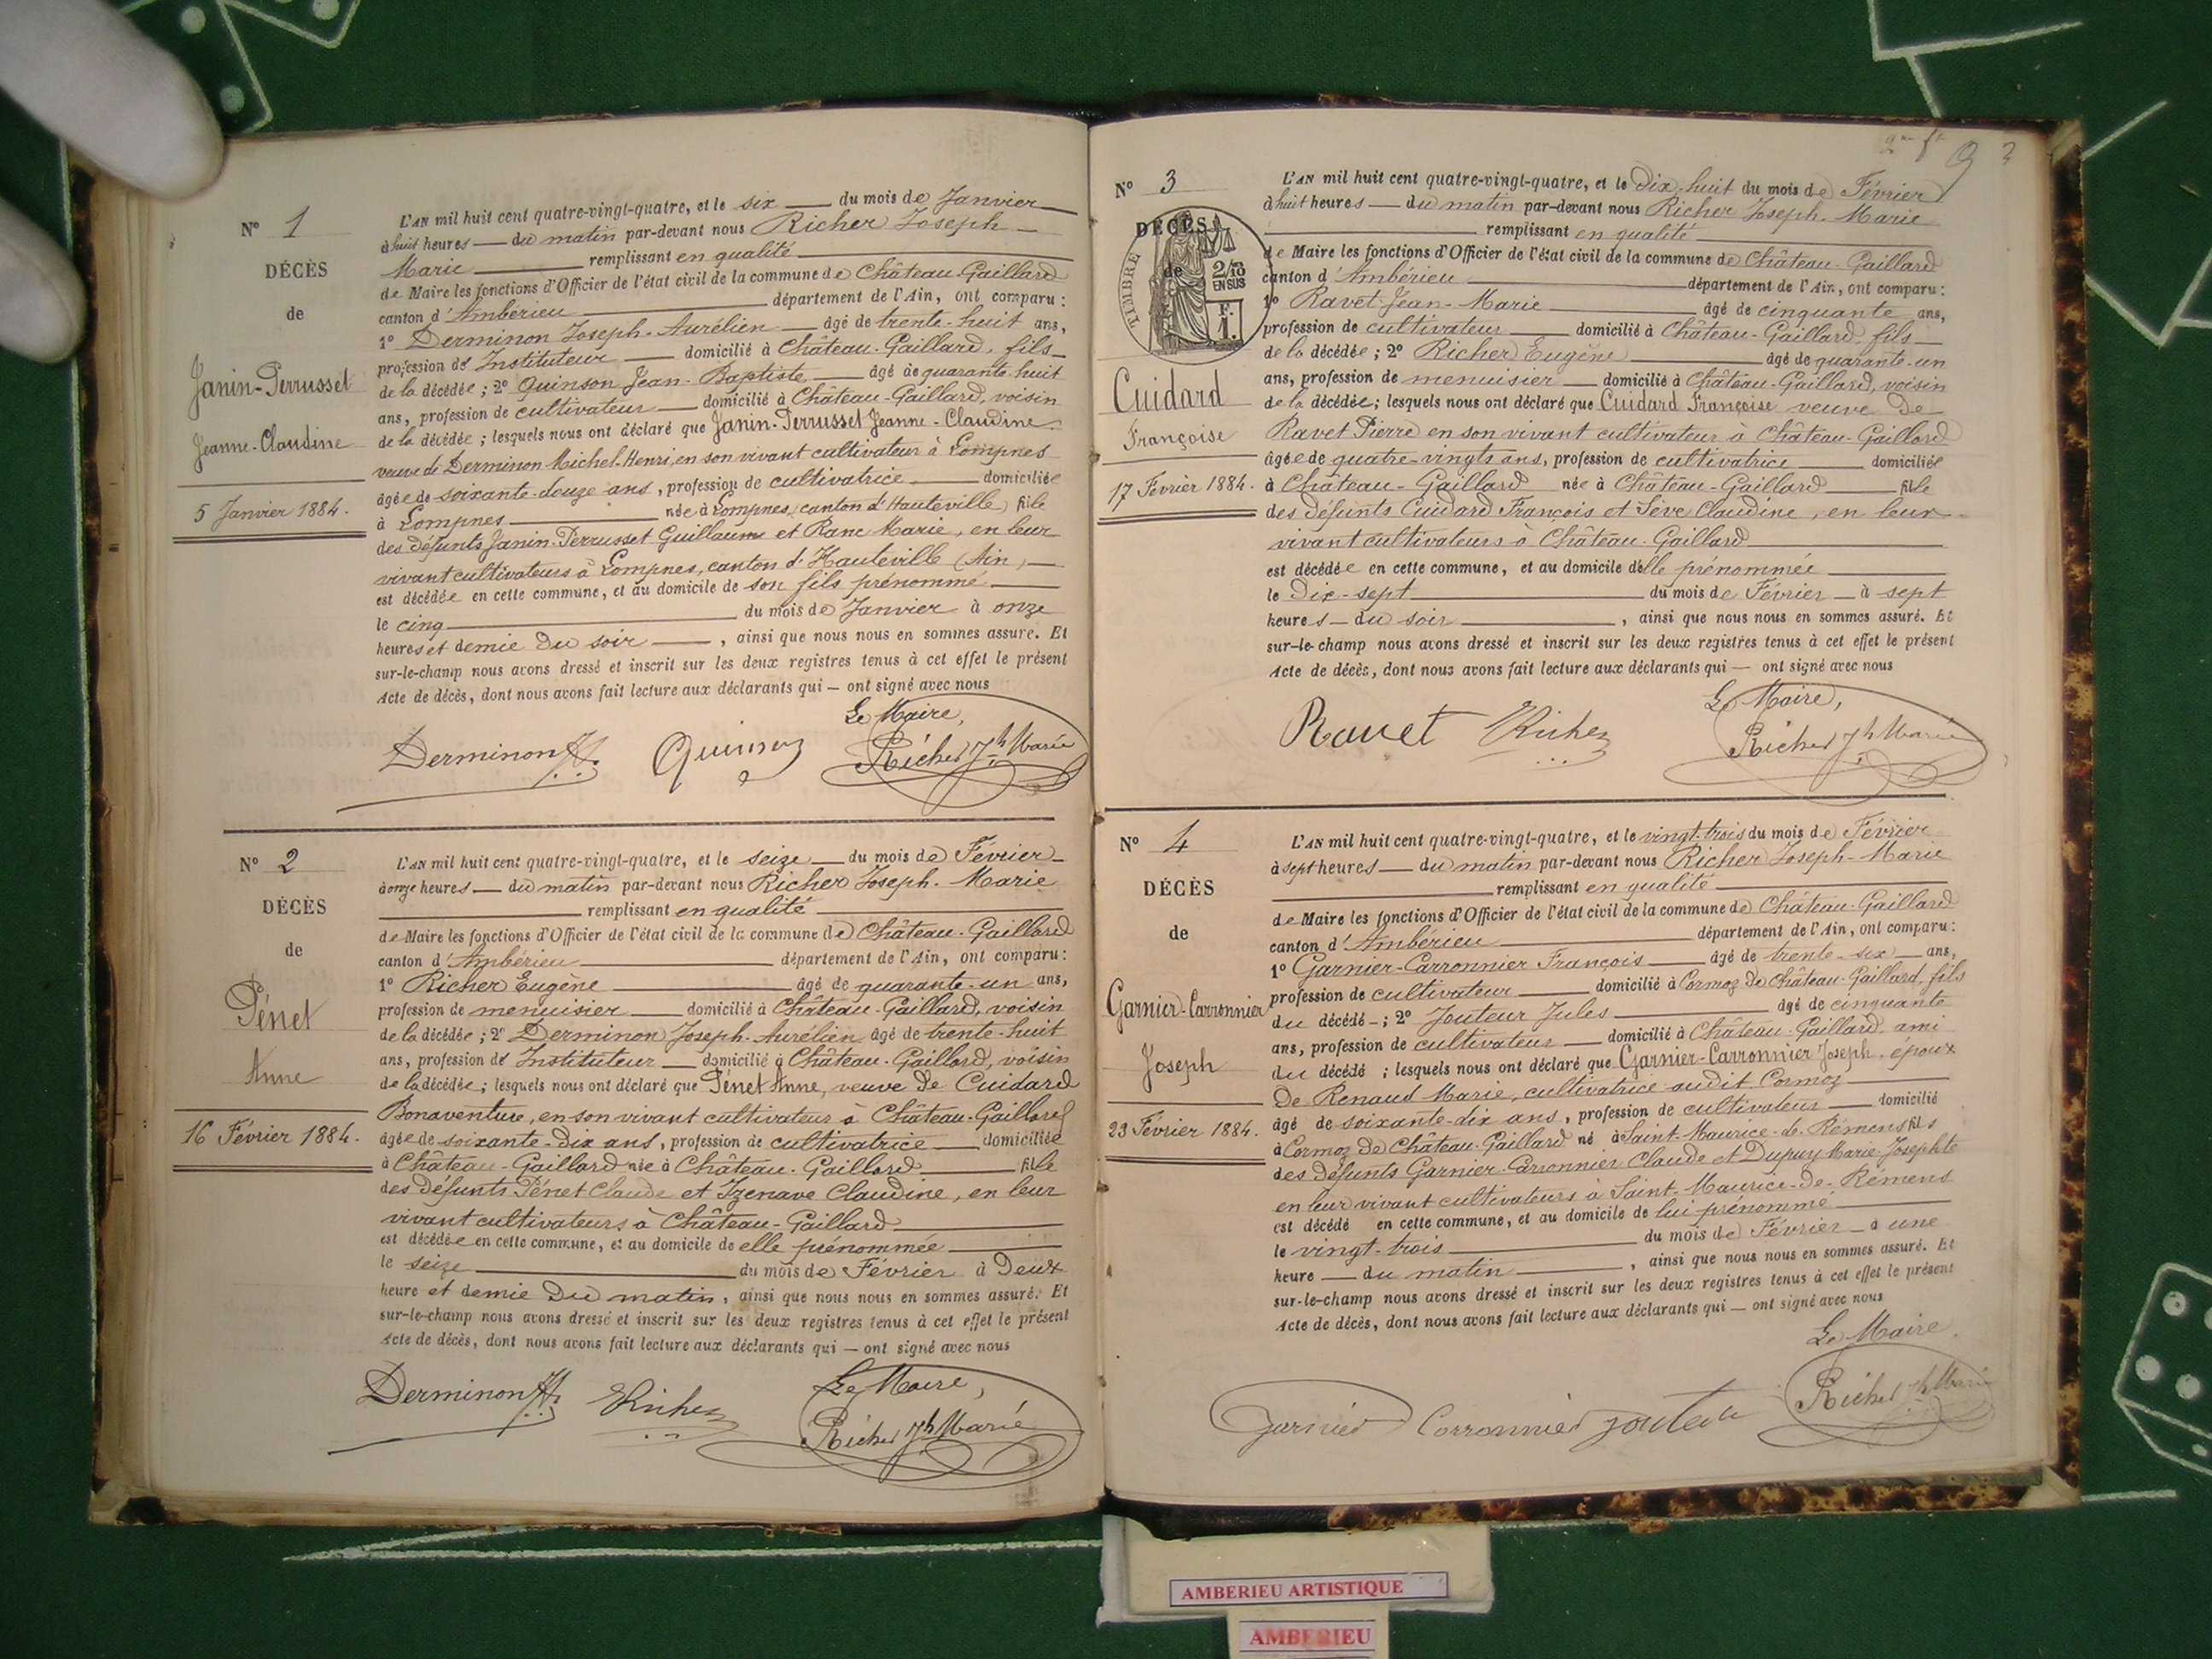 Nº 1
DÉCÈS
de
Janin-Perrusset
Jeanne-Claudine
5 Janvier 1884.
L'AN mil huit cent quatre-vingt-quatre, et le six du mois de Janvier
à huit heures du matin par-devant nous Richer Joseph
Marie remplissant en qualité
de Maire les fonctions d'Officier de l'état civil de la commune de Château-Gaillard
canton d'Ambérieu département de l'Ain, ont comparu :
1º Derminon Joseph-Aurélien âgé de trente-huit ans,
profession de Instituteur domicilié à Château-Gaillard, fils
de la décédée ; 2º Quinson Jean-Baptiste âgé de quarante-huit
ans, profession de cultivateur domicilié à Château-Gaillard, voisin
de la décédée ; lesquels nous ont déclaré que Janin-Perrusset Jeanne-Claudine
veuve de Derminon Michel-Henri, en son vivant cultivateur à Lompnes
âgée de soixante-douze ans, profession de cultivatrice domiciliée
à Lompnes née à Lompnes, canton d'Hauteville, fille
des défunts Janin-Perrusset Guillaume et Ranc Marie, en leur
vivant cultivateurs à Lompnes, canton d'Hauteville (Ain)
est décédée en cette commune, et au domicile de son fils prénommé
le cinq du mois de Janvier à onze
heures et demie du soir, ainsi que nous nous en sommes assuré. Et
sur-le-champ nous avons dressé et inscrit sur les deux registres tenus à cet effet le présent
Acte de décès, dont nous avons fait lecture aux déclarants qui — ont signé avec nous
Le Maire,
Derminon Quinson Richer Jh Marie
Nº 2
DÉCÈS
de
Pénet
Anne
16 Février 1884.
L'AN mil huit cent quatre-vingt-quatre, et le seize du mois de Février
à onze heures du matin par-devant nous Richer Joseph-Marie
remplissant en qualité
de Maire les fonctions d'Officier de l'état civil de la commune de Château-Gaillard
canton d'Ambérieu département de l'Ain, ont comparu :
1º Richer Eugène âgé de quarante-un ans,
profession de menuisier domicilié à Château-Gaillard, voisin
de la décédée ; 2º Derminon Joseph-Aurélien âgé de trente-huit
ans, profession de Instituteur domicilié à Château-Gaillard, voisin
de la décédée ; lesquels nous ont déclaré que Pénet Anne, veuve de Cuidard
Bonaventure, en son vivant cultivateur à Château-Gaillard
âgée de soixante-dix ans, profession de cultivatrice domiciliée
à Château-Gaillard née à Château-Gaillard fille
des défunts Pénet Claude et Izenave Claudine, en leur
vivant cultivateurs à Château-Gaillard
est décédée en cette commune, et au domicile de elle prénommée
le seize du mois de Février à Deux
heure et demie du matin, ainsi que nous nous en sommes assuré. Et
sur-le-champ nous avons dressé et inscrit sur les deux registres tenus à cet effet le présent
Acte de décès, dont nous avons fait lecture aux déclarants qui — ont signé avec nous
Le Maire,
Derminon Richer Richer Jh Marie
Nº 3
DÉCÈS
de
TIMBRE
2/10
EN SUS
F.
1.
Cuidard
Françoise
17 Février 1884.
L'AN mil huit cent quatre-vingt-quatre, et le dix-huit du mois de Février
à huit heures du matin par-devant nous Richer Joseph-Marie
remplissant en qualité
de Maire les fonctions d'Officier de l'état civil de la commune de Château-Gaillard
canton d'Ambérieu département de l'Ain, ont comparu :
1º Ravet Jean-Marie âgé de cinquante ans,
profession de cultivateur domicilié à Château-Gaillard, fils
de la décédée ; 2º Richer Eugène âgé de quarante-un
ans, profession de menuisier domicilié à Château-Gaillard, voisin
de la décédée ; lesquels nous ont déclaré que Cuidard Françoise veuve de
Ravet Pierre en son vivant cultivateur à Château-Gaillard
âgée de quatre-vingts ans, profession de cultivatrice domiciliée
à Château-Gaillard née à Château-Gaillard fille
des défunts Cuidard François et Sève Claudine, en leur
vivant cultivateurs à Château-Gaillard
est décédée en cette commune, et au domicile d'elle prénommée
le Dix-sept du mois de Février à sept
heures du soir, ainsi que nous nous en sommes assuré. Et
sur-le-champ nous avons dressé et inscrit sur les deux registres tenus à cet effet le présent
Acte de décès, dont nous avons fait lecture aux déclarants qui — ont signé avec nous
Le Maire,
Ravet Richer Richer Jh Marie
Nº 4
DÉCÈS
de
Garnier-Carronnier
Joseph
23 Février 1884.
L'AN mil huit cent quatre-vingt-quatre, et le vingt-trois du mois de Février
à sept heures du matin par-devant nous Richer Joseph-Marie
remplissant en qualité
de Maire les fonctions d'Officier de l'état civil de la commune de Château-Gaillard
canton d'Ambérieu département de l'Ain, ont comparu :
1º Garnier-Carronnier François âgé de trente-six ans,
profession de cultivateur domicilié à Cormoz de Château-Gaillard, fils
du décédé ; 2º Jouteur Jules âgé de cinquante
ans, profession de cultivateur domicilié à Château-Gaillard ami
du décédé ; lesquels nous ont déclaré que Garnier-Carronnier Joseph, époux
de Renaud Marie, cultivatrice audit Cormoz
âgé de soixante-dix ans, profession de cultivateur domicilié
à Cormoz de Château-Gaillard né à Saint-Maurice-de-Rémens fils
des défunts Garnier-Carronnier Claude et Dupuy Marie-Josephte
en leur vivant cultivateurs à Saint-Maurice-de-Rémens
est décédé en cette commune, et au domicile de lui prénommé
le vingt-trois du mois de Février à une
heure du matin, ainsi que nous nous en sommes assuré. Et
sur-le-champ nous avons dressé et inscrit sur les deux registres tenus à cet effet le présent
Acte de décès, dont nous avons fait lecture aux déclarants qui — ont signé avec nous
Le Maire
Garnier Carronnier Jouteur Richer Jh Marie
AMBERIEU ARTISTIQUE
AMBERIEU